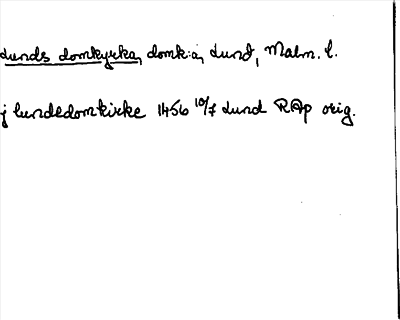 Lunds domkyrka, domk:a, Lund, Malm. l.
j lundedomkirke 1456 10/7 Lund RAp orig.